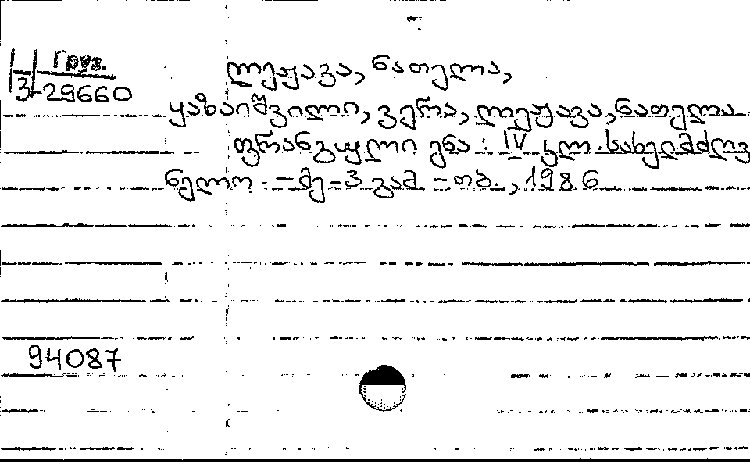 Груз.
3-29660
ლეჟავა, ნათელა,
ყაზაიშვილი, ვერა, ლეჟავა, ნათელა
ფრანგული ენა : IV კლ. სახელმძღვ
ნელო. - მე-3 გამ - თბ., 1986
94087